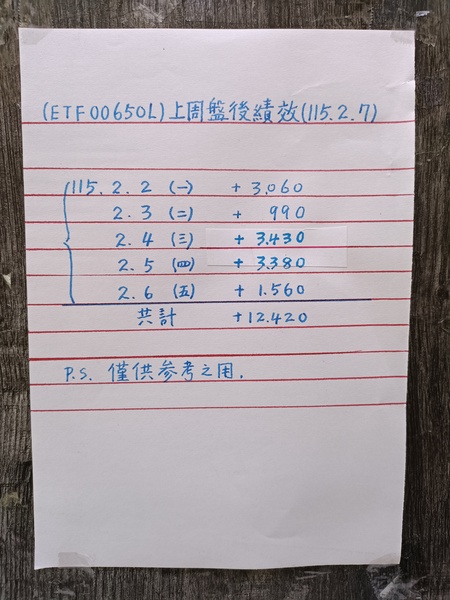 (ETF00650L)上周盤後績效(115.2.7)
115.2.2(一) +3.060
2.3(二) + 990
2.4(三) +3.430
2.5(四) +3.380
2.6(五) +1.560
共計 +12.420
P.S. 僅供參考之用.